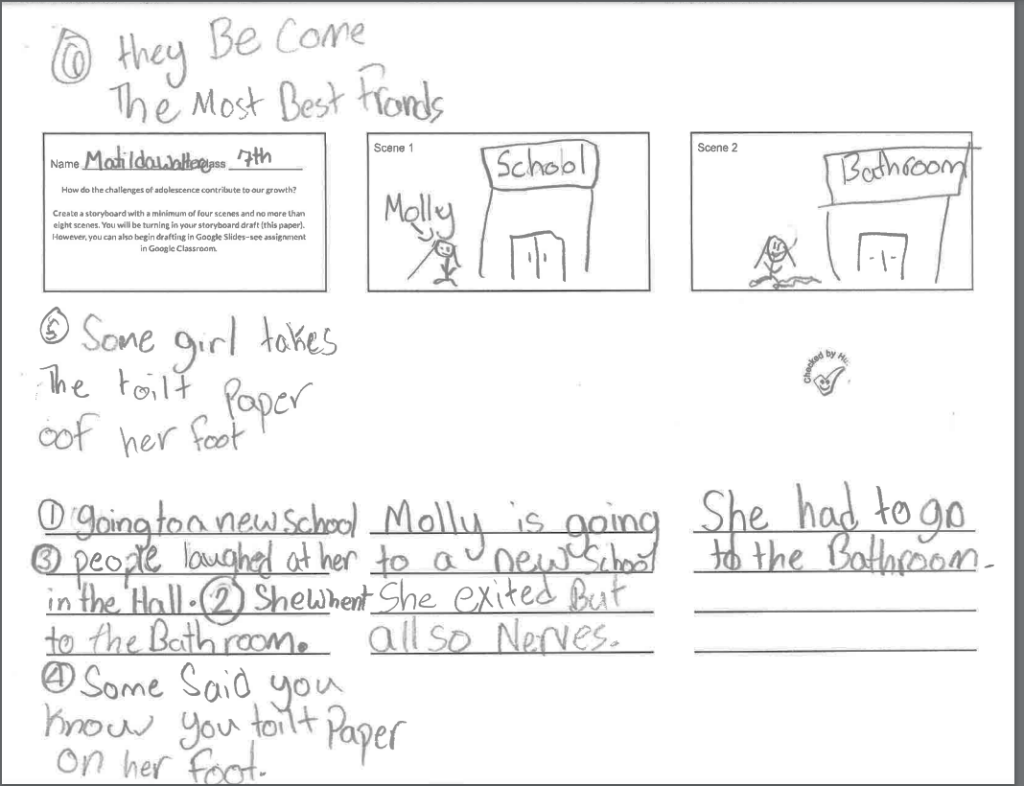 ⑥ they Be Come
The Most Best Frands
Name Matilda Class 7th
How do the challenges of adolescence contribute to our growth?
Create a storyboard with a minimum of four scenes and no more than
eight scenes. You will be turning in your storyboard draft (this paper).
However, you can also begin drafting in Google Slides–see assignment
in Google Classroom.
Scene 1
School
Molly
Scene 2
Bathroom
⑤ Some girl takes
The toilt Paper
oof her foot
Checked by
① going to a new school
③ people laughed at her
in the Hall. ② She whent
to the Bathroom.
④ Some Said you
know you toilt Paper
on her foot.
Molly is going
to a new School
She exited But
all so Nerves.
She had to go
to the Bathroom.